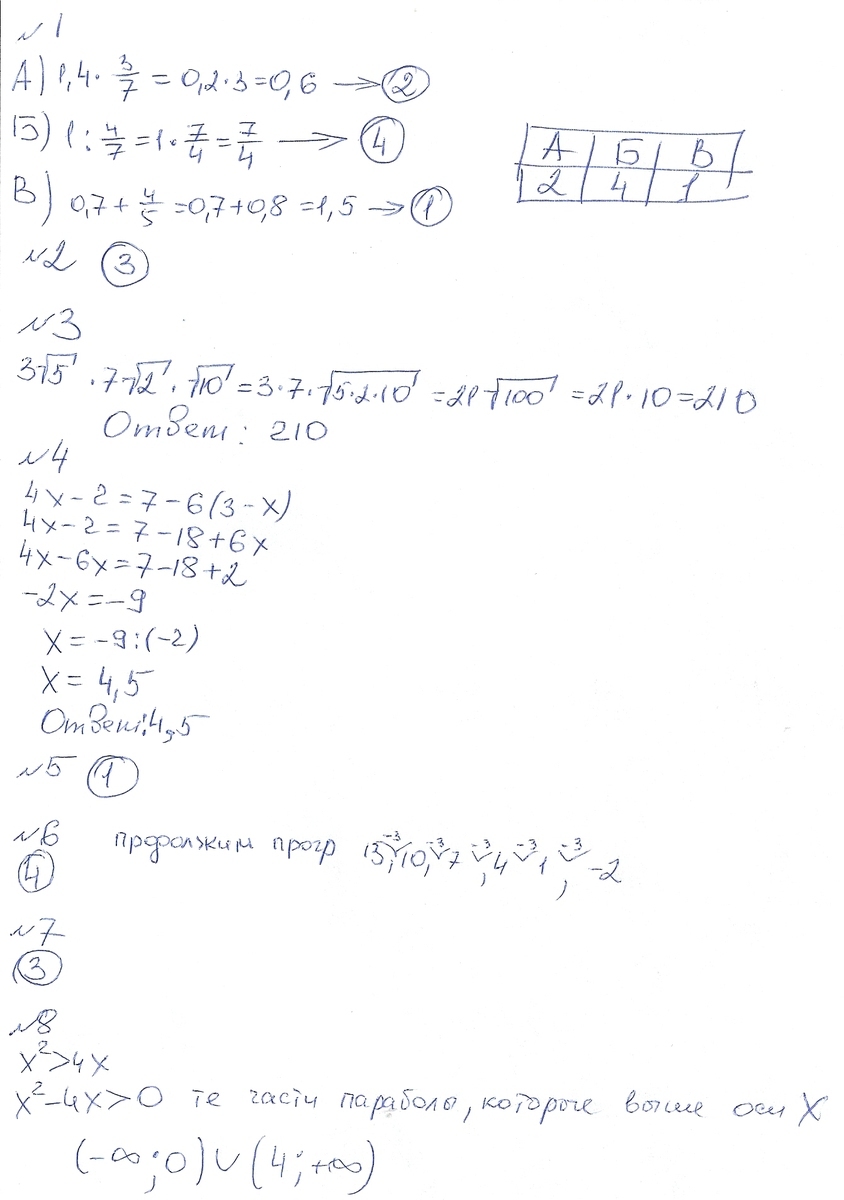 №1
А) 1,4 · 3/7 = 0,2·3=0,6 → ②
Б) 1 : 4/7 = 1 · 7/4 = 7/4 → ④
В) 0,7 + 4/5 = 0,7+0,8 = 1,5 → ①
А | Б | В
2 | 4 | 1
№2 ③
№3
3√5 · 7√2 · √10 = 3·7·√5·2·10 = 21√100 = 21·10=210
Ответ: 210
№4
4x-2=7-6(3-x)
4x-2=7-18+6x
4x-6x=7-18+2
-2x=-9
x=-9:(-2)
x= 4,5
Ответ: 4,5
№5 ①
№6 продолжим прогр 13, 10, 7, 4, 1, -2
-3 -3 -3 -3 -3
④
№7
③
№8
x²>4x
x²-4x>0 те части параболы, которые выше оси X
(-∞; 0) ∪ (4; +∞)